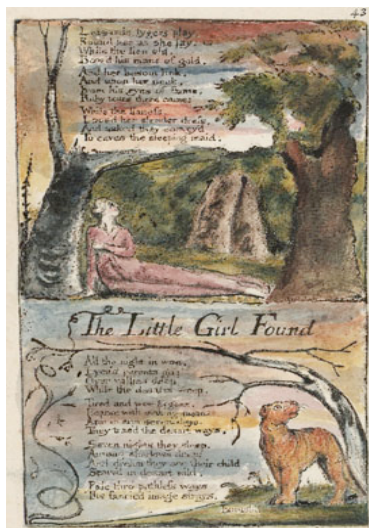 43
Leopards, tygers play,
Round her as she lay;
While the lion old,
Bow'd his mane of gold,
And her bosom lick,
And upon her neck,
From his eyes of flame,
Ruby tears there came;
While the lioness
Loos'd her slender dress,
And naked they convey'd
To caves the sleeping maid.
The Little Girl Found
All the night in woe,
Lyca's parents go:
Over vallies deep,
While the desarts weep.
Tired and woe-begone,
Hoarse with making moan:
Arm in arm seven days,
They trac'd the desart ways.
Seven nights they sleep,
Among shadows deep:
And dream they see their child
Starv'd in desart wild.
Pale thro pathless ways
The fancied image strays,